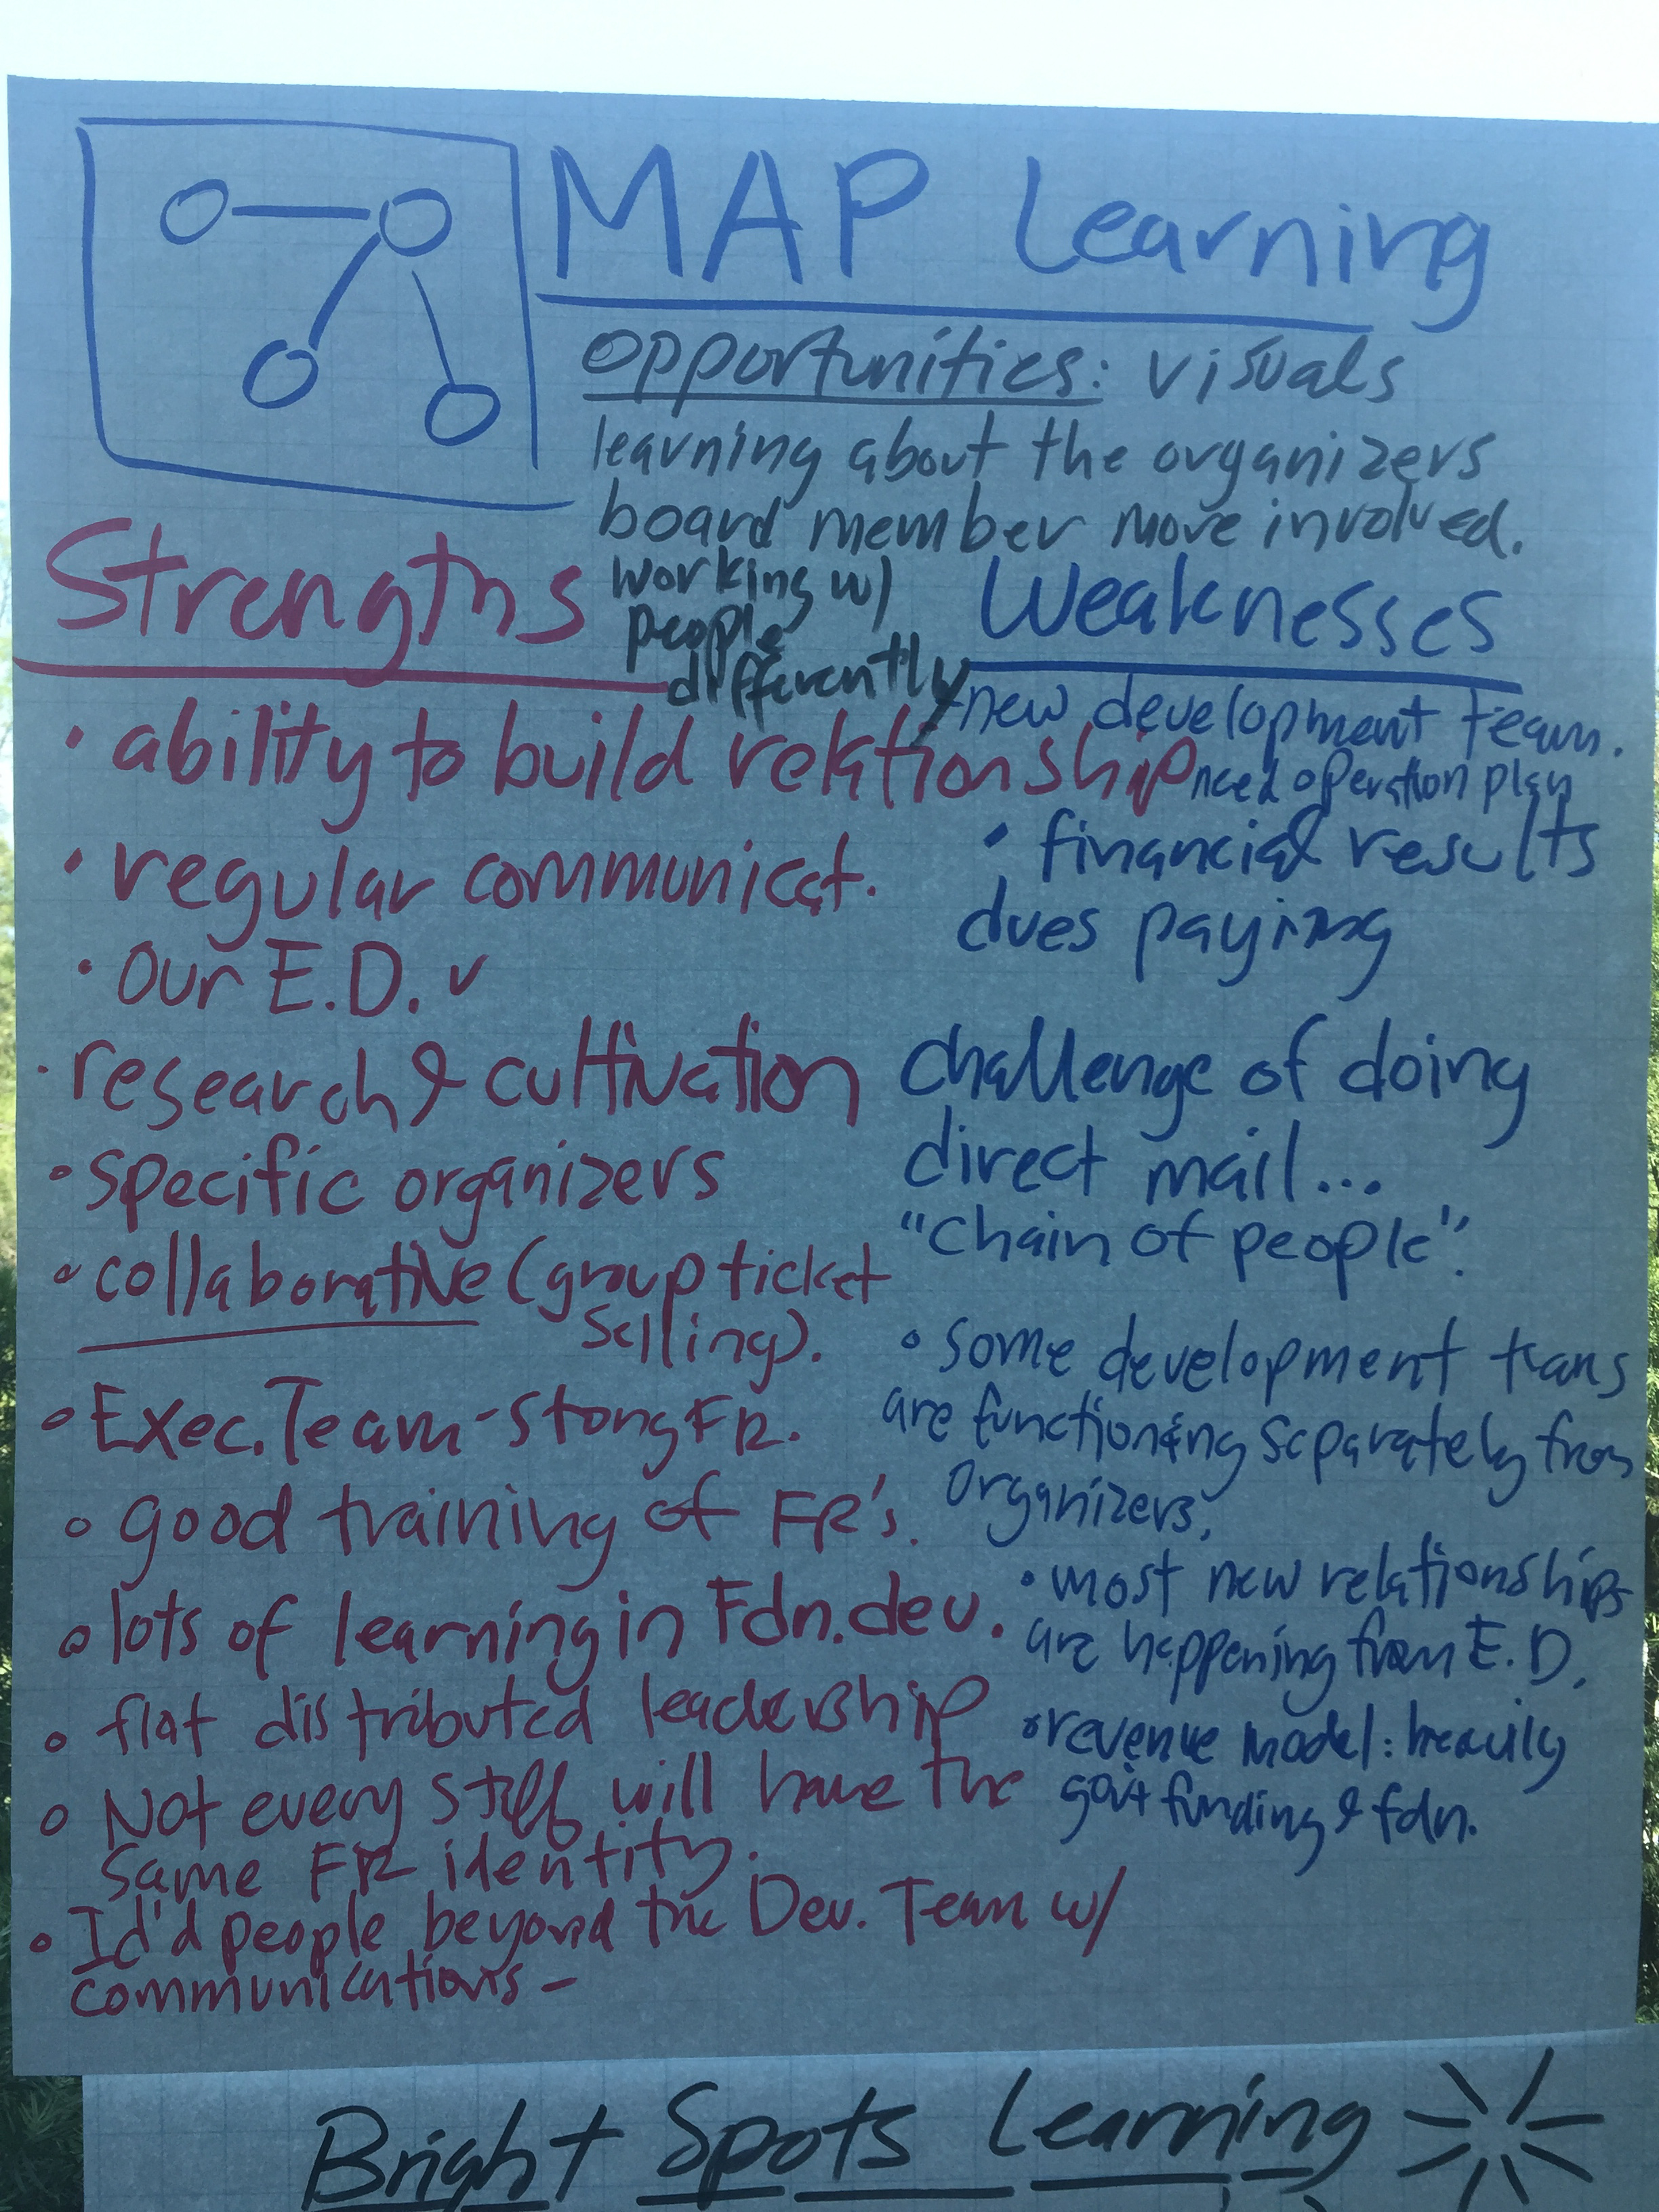 MAP Learning
Opportunities: visuals
learning about the organizers
board member more involved.
working w/
people
differently
Strengths
• ability to build relationship
• regular communicat.
• Our E.D. ✓
• research & cultivation
• specific organizers
• collaborative (group ticket
selling).
• Exec. Team - Stong FR.
• good training of FR's.
• lots of learning in Fdn. dev.
• flat distributed leadership
• Not every staff will have the
same FR identity.
• Id'd people beyond the Dev. Team w/
communications -
Weaknesses
- new development team.
need operation plan
• financial results
dues paying
Challenge of doing
direct mail...
"Chain of people".
• some development teams
are functioning separately from
organizers.
• most new relationships
are happening from E.D.
• revenue model: heavily
gov't funding & fdn.
Bright Spots Learning